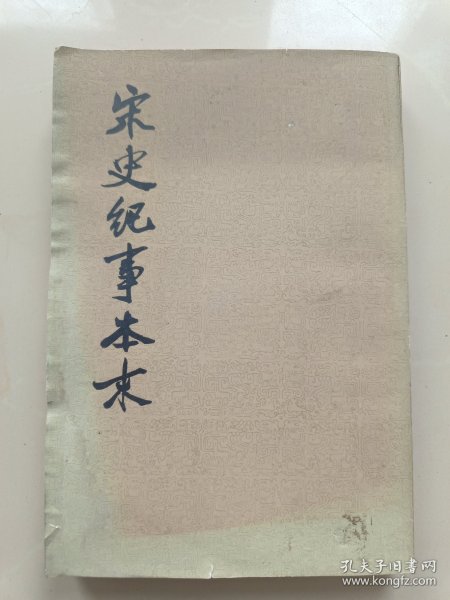 宋史纪事本末
孔夫子旧书网
www.kongfz.com